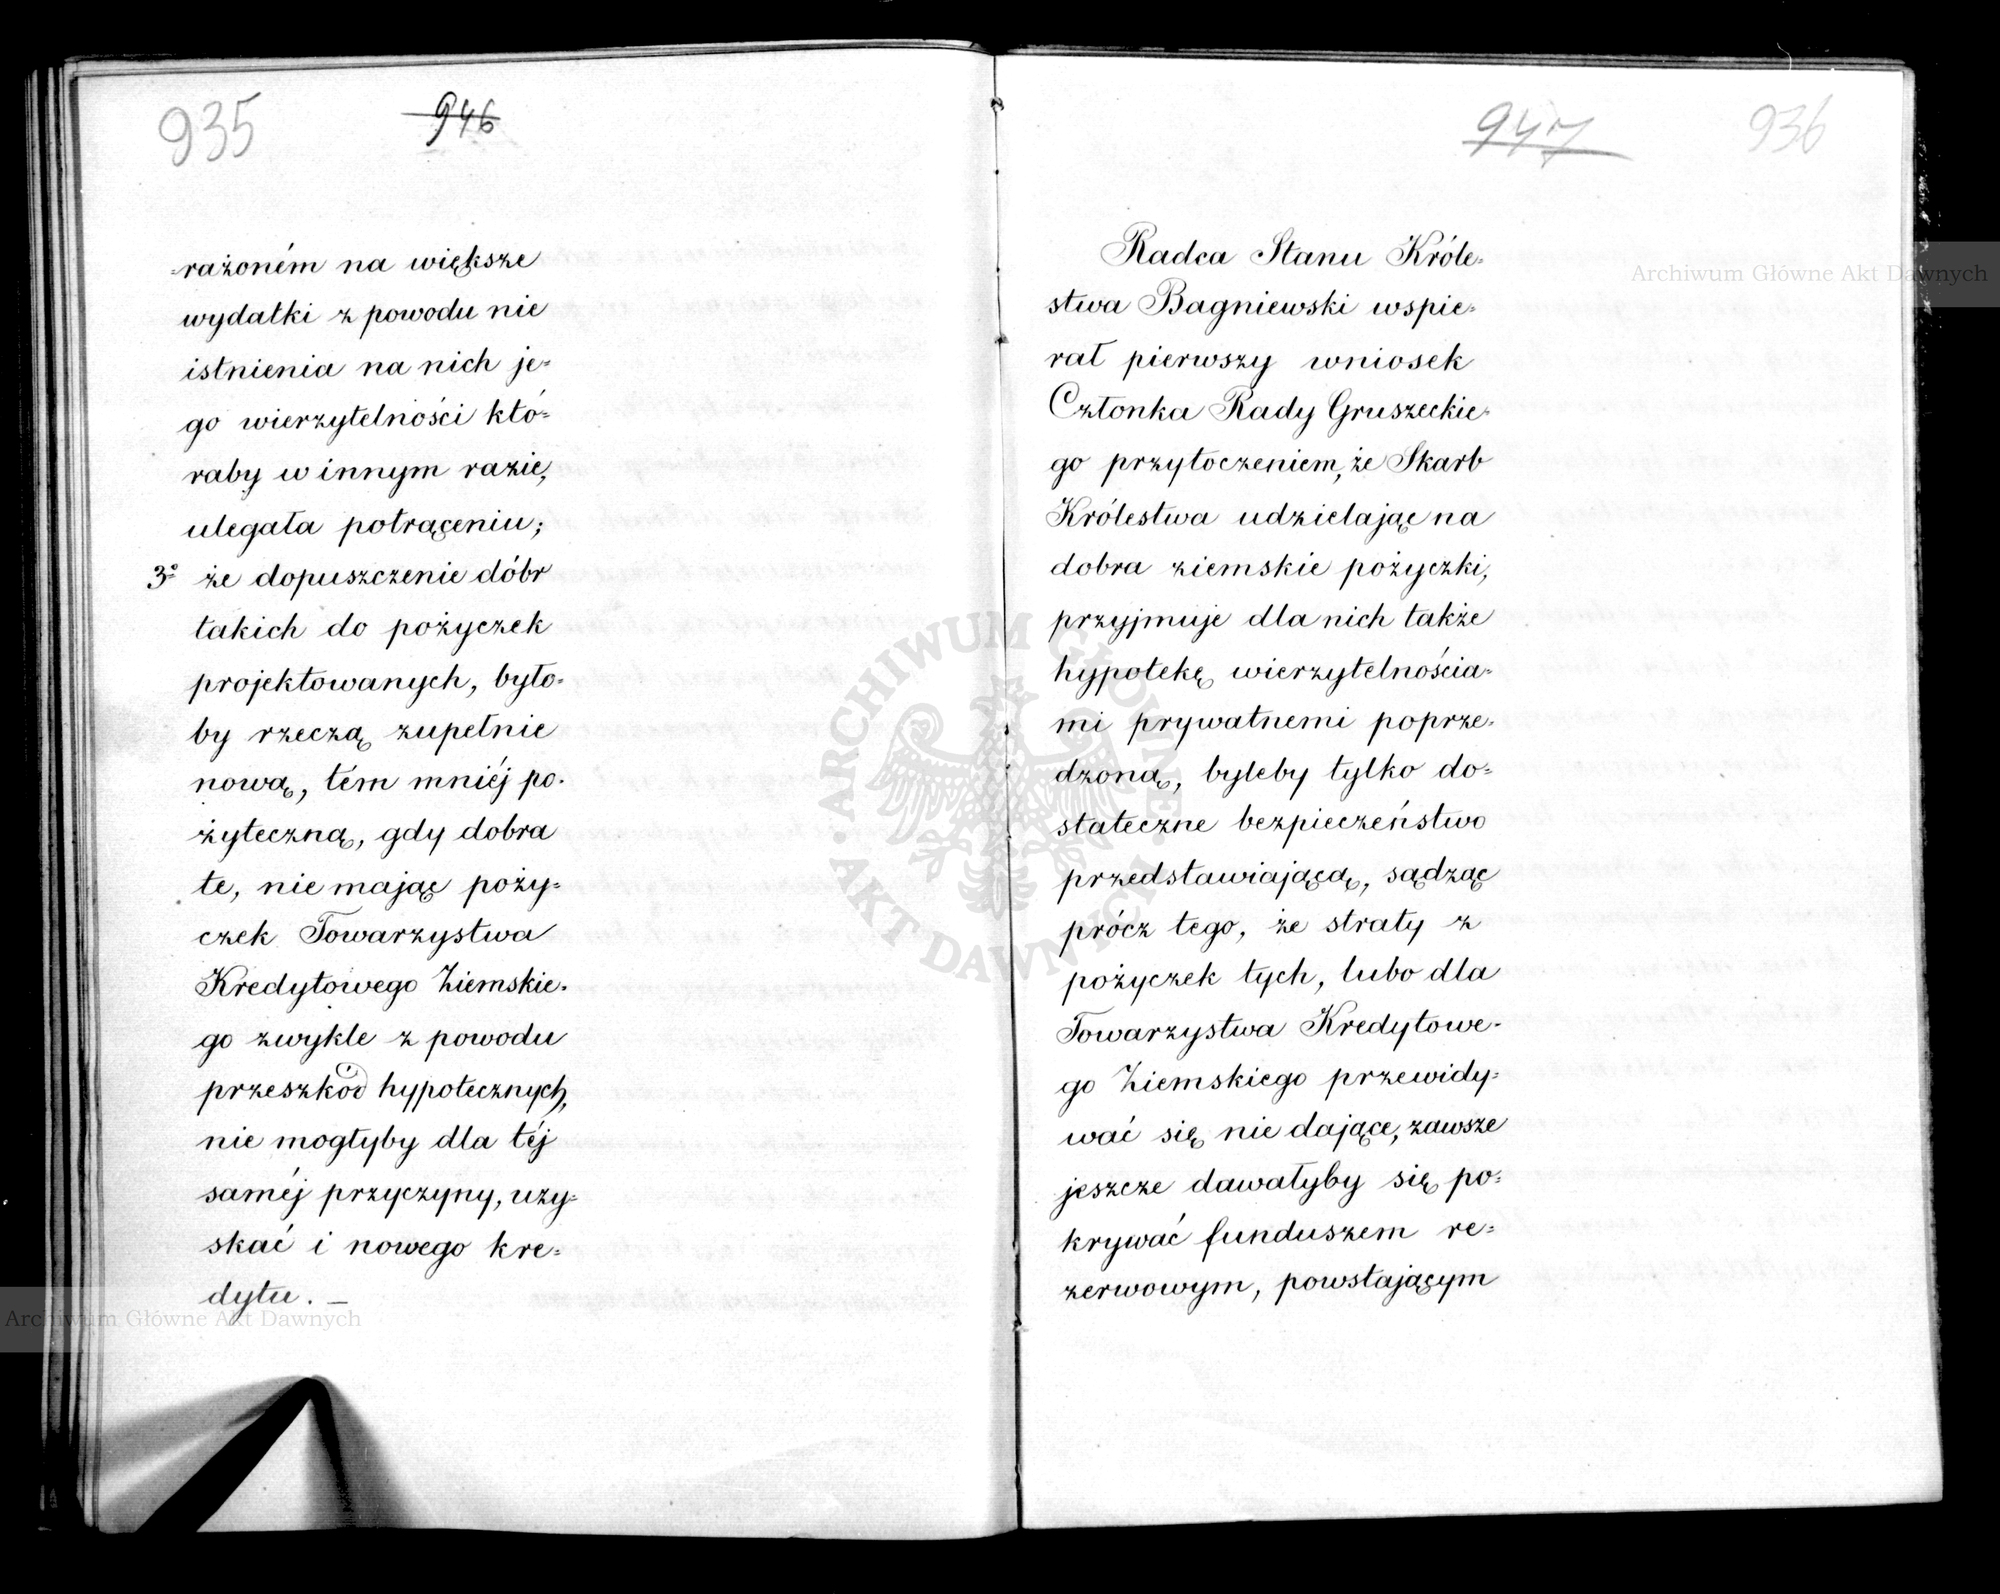 935 946
-rażoném na większe
wydatki z powodu nie
istnienia na nich je=
go wierzytelności któ=
raby w innym razie,
ulegała potrąceniu;
3º że dopuszczenie dóbr
takich do pożyczek
projektowanych, było=
by rzeczą zupełnie
nową, tém mniéj po=
żyteczną, gdy dobra
te, nie mając poży=
czek Towarzystwa
Kredytowego Ziemskie=
go zwykle z powodu
przeszkód hypotecznych,
nie mogłyby dla téj
saméj przyczyny, uzy=
skać i nowego kre=
dytu. —
947 936
Radca Stanu Króle=
stwa Bagniewski wspie=
rał pierwszy wniosek
Członka Rady Gruszeckie=
go przytoczeniem, że Skarb
Królestwa udzielając na
dobra ziemskie pożyczki,
przyjmuje dla nich także
hypotekę wierzytelnościa=
mi prywatnemi poprze=
dzoną, byleby tylko do=
stateczne bezpieczeństwo
przedstawiającą, sądząc
prócz tego, że straty z
pożyczek tych, lubo dla
Towarzystwa Kredytowe=
go Ziemskiego przewidy=
wać się nie dające, zawsze
jeszcze dawałyby się po=
krywać funduszem re=
zerwowym, powstającym
Archiwum Główne Akt Dawnych
Archiwum Główne Akt Dawnych
ARCHIWUM GŁÓWNE AKT DAWNYCH